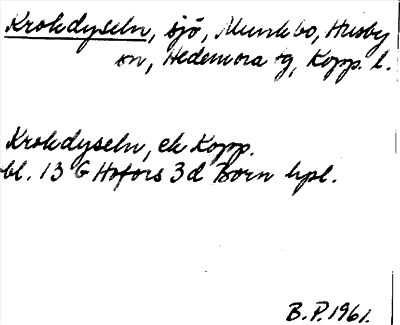 Krokdyseln, sjö, Munkbo, Husby
sn, Hedemora tg, Kopp. l.
Krokdyseln, ek Kopp.
bl. 13 G Hofors 3d Born hpl.
B.P. 1961.